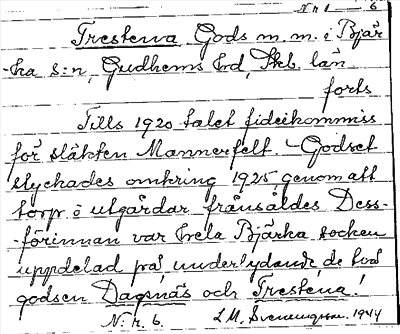 N:r 1 — 6
Trestena Gods m.m. i Bjär
-ka s:n, Gudhems hd, Skb. län
forts
Tills 1920 talet fideikommiss
för släkten Mannerfelt. Godset
styckades omkring 1925, genom att
torp o utgårdar frånsåldes Dess-
-förinnan var hela Bjärka socken
uppdelad på, underlydande, de två
godsen Dagsnäs och Trestena!
N:r. 6. L.M. Svenungsson. 1944